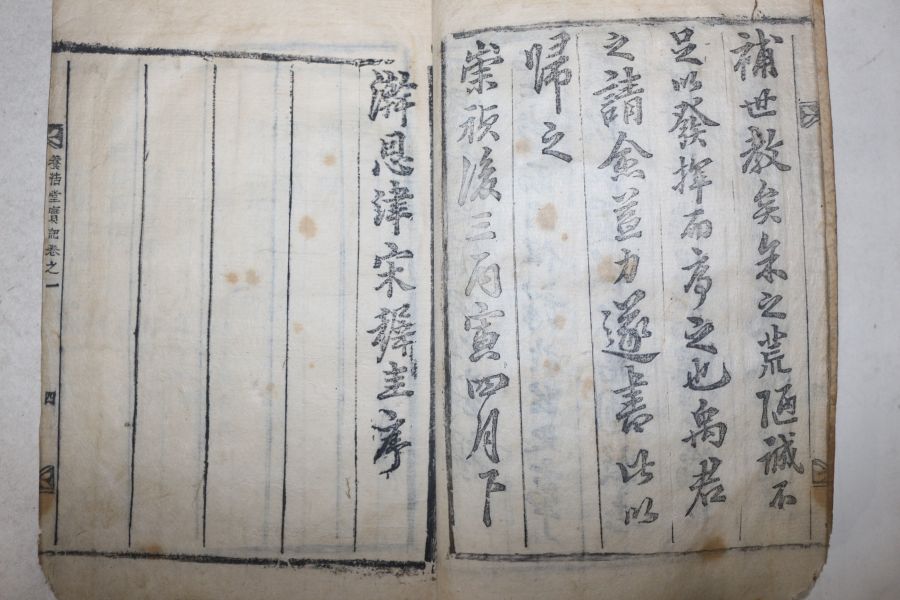 補世教矣余之荒陋誠不
足以發揮而序之也禹君
之請愈益力遂書此以
歸之
崇禎後三丙寅四月下
澣恩津宋穉圭序
養浩堂實記卷之一
四